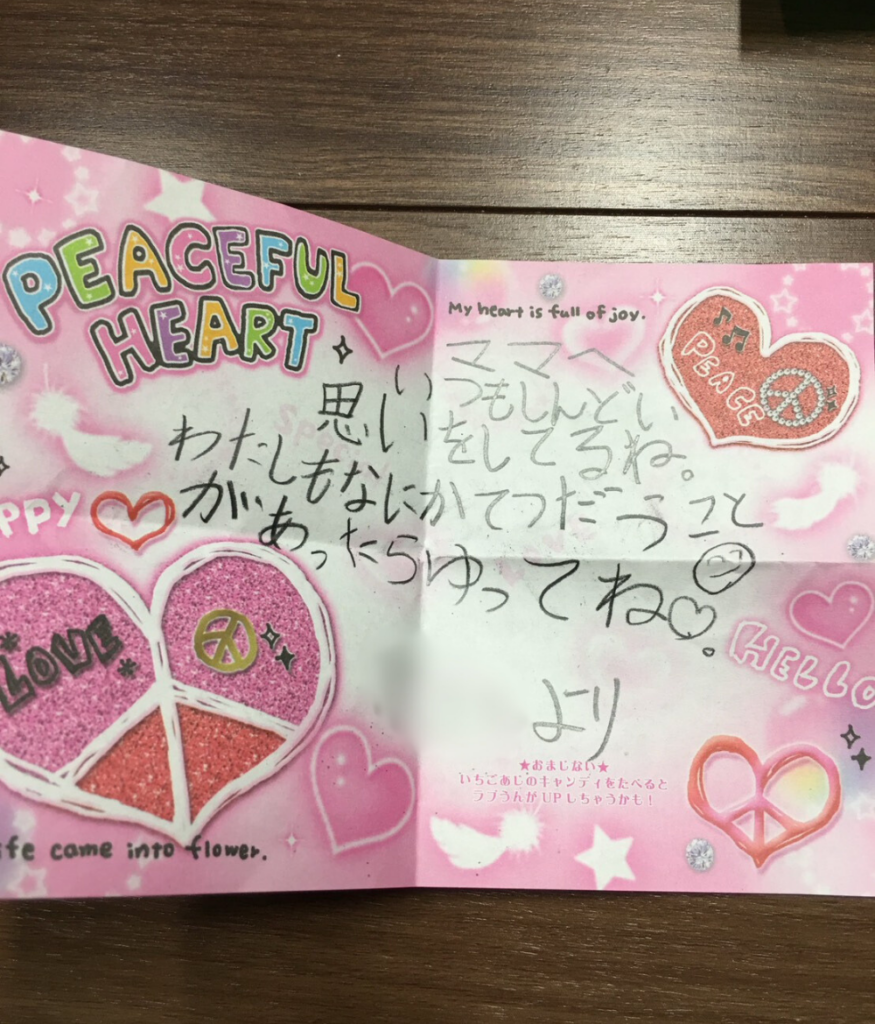 PEACEFUL
HEART
PPY
LOVE
ife came into flower.
My heart is full of joy.
PEACE
ママへ
いつもしんどい
思いをしてるね。
わたしもなにかてつだうこと
があったらゆってね。
より
HELLO
★おまじない★
いちごあじのキャンディをたべると
ラブうんがUPしちゃうかも！